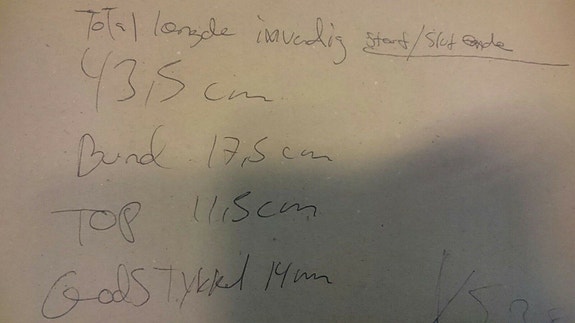 Total længde invendig start/slut ende
43,5 cm
Bund 17,5 cm
TOP 11,5 cm
Gods Tykkel 14mm